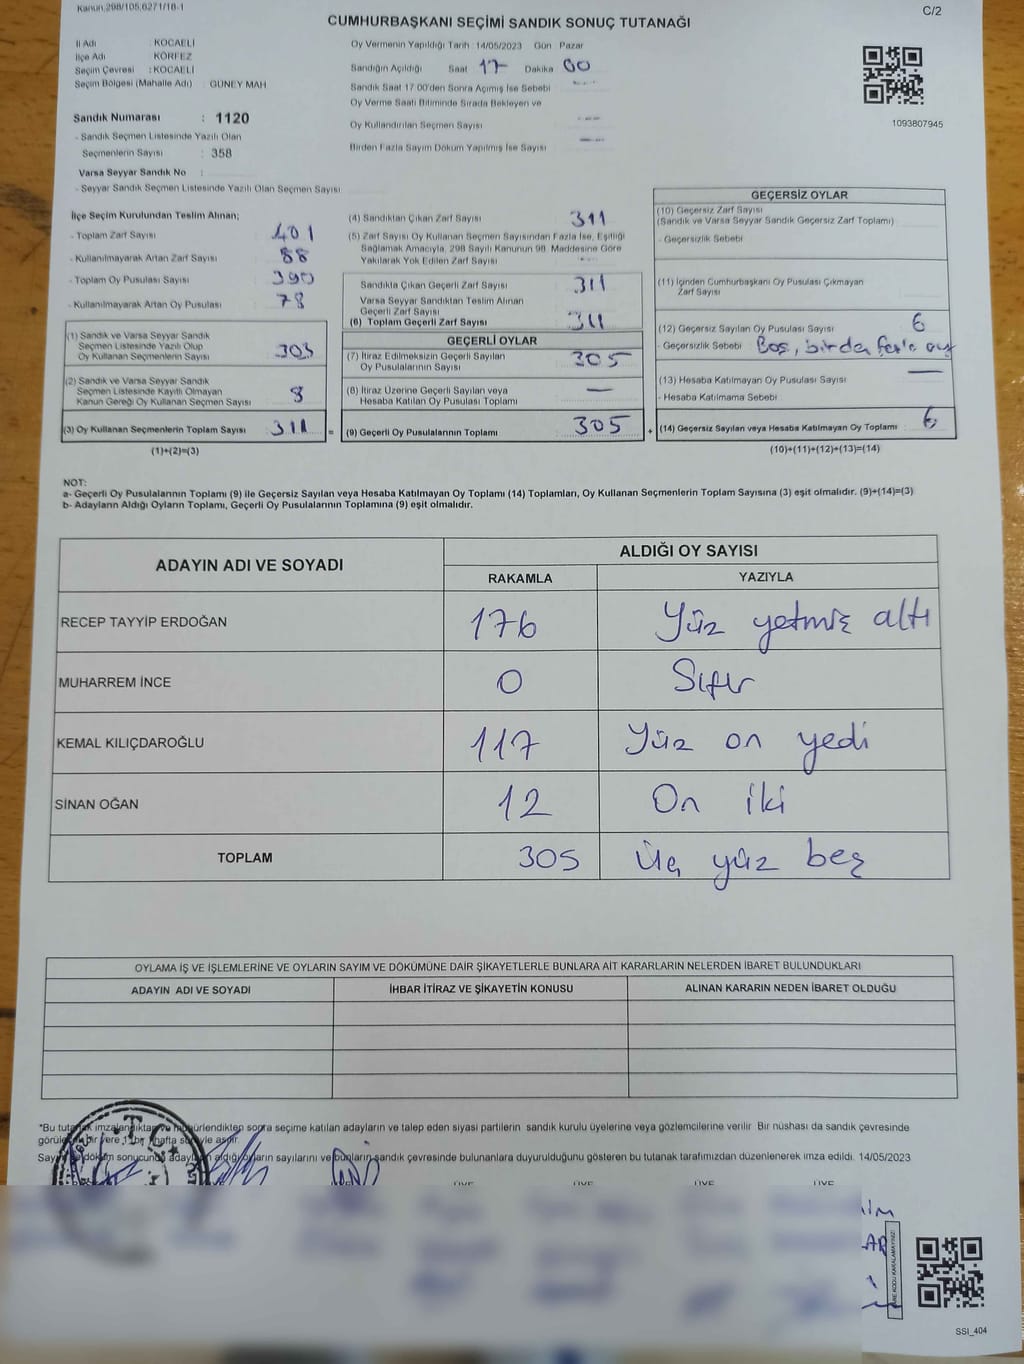 Kanun.298/105,6271/18-1
C/2
CUMHURBAŞKANI SEÇİMİ SANDIK SONUÇ TUTANAĞI
İl Adı : KOCAELİ
İlçe Adı : KÖRFEZ
Seçim Çevresi : KOCAELİ
Seçim Bölgesi (Mahalle Adı) : GÜNEY MAH
Sandık Numarası : 1120
- Sandık Seçmen Listesinde Yazılı Olan
Seçmenlerin Sayısı : 358
Varsa Seyyar Sandık No :
- Seyyar Sandık Seçmen Listesinde Yazılı Olan Seçmen Sayısı
Oy Vermenin Yapıldığı Tarih : 14/05/2023 Gün : Pazar
Sandığın Açıldığı Saat 17 Dakika 00
Sandık Saat 17.00'den Sonra Açımış İse Sebebi
Oy Verme Saati Bitiminde Sırada Bekleyen ve
Oy Kullandırılan Seçmen Sayısı
Birden Fazla Sayım Döküm Yapılmış İse Sayısı
1093807945
İlçe Seçim Kurulundan Teslim Alınan;
- Toplam Zarf Sayısı 401
- Kullanılmayarak Artan Zarf Sayısı 88
- Toplam Oy Pusulası Sayısı 390
- Kullanılmayarak Artan Oy Pusulası 78
(1) Sandık ve Varsa Seyyar Sandık
Seçmen Listesinde Yazılı Olup
Oy Kullanan Seçmenlerin Sayısı 303
(2) Sandık ve Varsa Seyyar Sandık
Seçmen Listesinde Kayıtlı Olmayan
Kanun Gereği Oy Kullanan Seçmen Sayısı 8
(3) Oy Kullanan Seçmenlerin Toplam Sayısı 311 =
(1)+(2)=(3)
(4) Sandıktan Çıkan Zarf Sayısı 311
(5) Zarf Sayısı Oy Kullanan Seçmen Sayısından Fazla İse, Eşitliği
Sağlamak Amacıyla, 298 Sayılı Kanunun 98. Maddesine Göre
Yakılarak Yok Edilen Zarf Sayısı
Sandıkta Çıkan Geçerli Zarf Sayısı 311
Varsa Seyyar Sandıktan Teslim Alınan
Geçerli Zarf Sayısı
(6) Toplam Geçerli Zarf Sayısı 311
GEÇERLİ OYLAR
(7) İtiraz Edilmeksizin Geçerli Sayılan
Oy Pusulalarının Sayısı 305
(8) İtiraz Üzerine Geçerli Sayılan veya
Hesaba Katılan Oy Pusulası Toplamı —
(9) Geçerli Oy Pusulalarının Toplamı 305 +
GEÇERSİZ OYLAR
(10) Geçersiz Zarf Sayısı
(Sandık ve Varsa Seyyar Sandık Geçersiz Zarf Toplamı)
- Geçersizlik Sebebi
(11) İçinden Cumhurbaşkanı Oy Pusulası Çıkmayan
Zarf Sayısı
(12) Geçersiz Sayılan Oy Pusulası Sayısı 6
- Geçersizlik Sebebi Boş, birden fazla oy
(13) Hesaba Katılmayan Oy Pusulası Sayısı —
- Hesaba Katılmama Sebebi
(14) Geçersiz Sayılan veya Hesaba Katılmayan Oy Toplamı 6
(10)+(11)+(12)+(13)=(14)
NOT:
a- Geçerli Oy Pusulalarının Toplamı (9) ile Geçersiz Sayılan veya Hesaba Katılmayan Oy Toplamı (14) Toplamları, Oy Kullanan Seçmenlerin Toplam Sayısına (3) eşit olmalıdır. (9)+(14)=(3)
b- Adayların Aldığı Oyların Toplamı, Geçerli Oy Pusulalarının Toplamına (9) eşit olmalıdır.
ADAYIN ADI VE SOYADI
ALDIĞI OY SAYISI
RAKAMLA YAZIYLA
RECEP TAYYİP ERDOĞAN 176 Yüz yetmiş altı
MUHARREM İNCE 0 Sıfır
KEMAL KILIÇDAROĞLU 117 Yüz on yedi
SİNAN OĞAN 12 On iki
TOPLAM 305 Üç yüz beş
OYLAMA İŞ VE İŞLEMLERİNE VE OYLARIN SAYIM VE DÖKÜMÜNE DAİR ŞİKAYETLERLE BUNLARA AİT KARARLARIN NELERDEN İBARET BULUNDUKLARI
ADAYIN ADI VE SOYADI İHBAR İTİRAZ VE ŞİKAYETİN KONUSU ALINAN KARARIN NEDEN İBARET OLDUĞU
*Bu tutanak imzalandıktan ve mühürlendikten sonra seçime katılan adayların ve talep eden siyasi partilerin sandık kurulu üyelerine veya gözlemcilerine verilir. Bir nüshası da sandık çevresinde
görülebilir bir yere 1 bir hafta süreyle asılır.
Sayım döküm sonucunda adayların aldığı oyların sayılarını ve bunların sandık çevresinde bulunanlara duyurulduğunu gösteren bu tutanak tarafımızdan düzenlenerek imza edildi. 14/05/2023
T.C.
ÜYE ÜYE ÜYE ÜYE
SSI_404